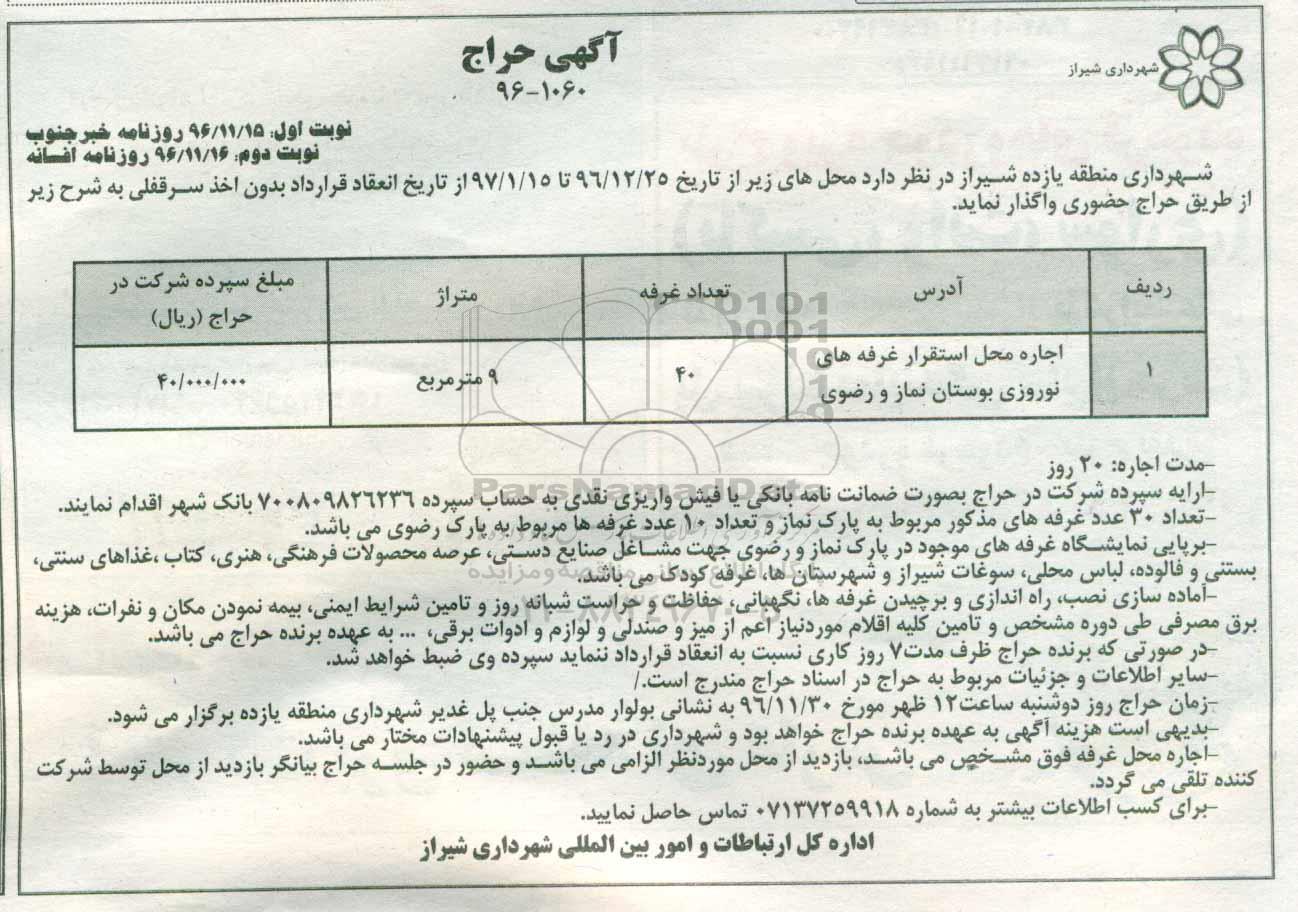 شهرداری شیراز
آگهی حراج
۹۶-۱۰۶۰
نوبت اول: ۹۶/۱۱/۱۵ روزنامه خبرجنوب
نوبت دوم: ۹۶/۱۱/۱۶ روزنامه افسانه
شهرداری منطقه یازده شیراز در نظر دارد محل های زیر از تاریخ ۹۶/۱۲/۲۵ تا ۹۷/۱/۱۵ از تاریخ انعقاد قرارداد بدون اخذ سرقفلی به شرح زیر
از طریق حراج حضوری واگذار نماید.
ردیف آدرس تعداد غرفه متراژ مبلغ سپرده شرکت در
حراج (ریال)
۱ اجاره محل استقرار غرفه های
نوروزی بوستان نماز و رضوی ۴۰ ۹ مترمربع ۴۰/۰۰۰/۰۰۰
-مدت اجاره: ۲۰ روز
-ارایه سپرده شرکت در حراج بصورت ضمانت نامه بانکی یا فیش واریزی نقدی به حساب سپرده ۷۰۰۸۰۹۸۲۶۲۳۶ بانک شهر اقدام نمایند.
-تعداد ۳۰ عدد غرفه های مذکور مربوط به پارک نماز و تعداد ۱۰ عدد غرفه ها مربوط به پارک رضوی می باشد.
-برپایی نمایشگاه غرفه های موجود در پارک نماز و رضوی جهت مشاغل صنایع دستی، عرصه محصولات فرهنگی، هنری، کتاب ،غذاهای سنتی،
بستنی و فالوده، لباس محلی، سوغات شیراز و شهرستان ها، غرفه کودک می باشد.
-آماده سازی نصب، راه اندازی و برچیدن غرفه ها، نگهبانی، حفاظت و حراست شبانه روز و تامین شرایط ایمنی، بیمه نمودن مکان و نفرات، هزینه
برق مصرفی طی دوره مشخص و تامین کلیه اقلام موردنیاز اعم از میز و صندلی و لوازم و ادوات برقی، ... به عهده برنده حراج می باشد.
-در صورتی که برنده حراج ظرف مدت۷ روز کاری نسبت به انعقاد قرارداد ننماید سپرده وی ضبط خواهد شد.
-سایر اطلاعات و جزئیات مربوط به حراج در اسناد حراج مندرج است./
-زمان حراج روز دوشنبه ساعت۱۲ ظهر مورخ ۹۶/۱۱/۳۰ به نشانی بولوار مدرس جنب پل غدیر شهرداری منطقه یازده برگزار می شود.
-بدیهی است هزینه آگهی به عهده برنده حراج خواهد بود و شهرداری در رد یا قبول پیشنهادات مختار می باشد.
-اجاره محل غرفه فوق مشخص می باشد، بازدید از محل موردنظر الزامی می باشد و حضور در جلسه حراج بیانگر بازدید از محل توسط شرکت
کننده تلقی می گردد.
-برای کسب اطلاعات بیشتر به شماره ۰۷۱۳۷۲۵۹۹۱۸ تماس حاصل نمایید.
اداره کل ارتباطات و امور بین المللی شهرداری شیراز
ParsNamadData